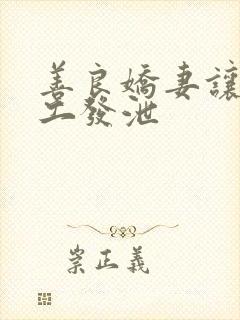 善良嬌妻讓
工發泄
崇正義